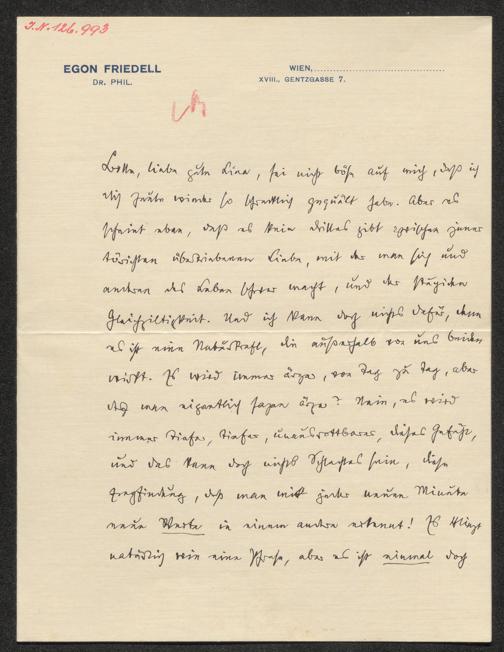 J.N. 126.993
EGON FRIEDELL
DR. PHIL.
WIEN,
XVIII., GENTZGASSE 7.
Bitte, liebe gute Lina, sei nicht böse auf mich, daß ich
dich heute wieder so schrecklich gequält habe. Aber es
scheint eben, daß es kein drittes gibt zwischen jener
törichten übertriebenen Liebe, mit der man sich und
anderen das Leben schwer macht, und der stupiden
Gleichgiltigkeit. Und ich kann doch nichts dafür, denn
es ist eine Naturkraft, die außerhalb von uns beiden
wirkt. Es wird immer ärger, von Tag zu Tag, aber
darf man eigentlich sagen ärger? Nein, es wird
immer tiefer, tiefer, unausrottbarer, dieses Gefühl,
und das kann doch nichts Schlechtes sein, diese
Empfindung, daß man mit jeder neuen Minute
neue Werte in einem andern erkennt! Es klingt
natürlich wie eine Phrase, aber es ist einmal doch